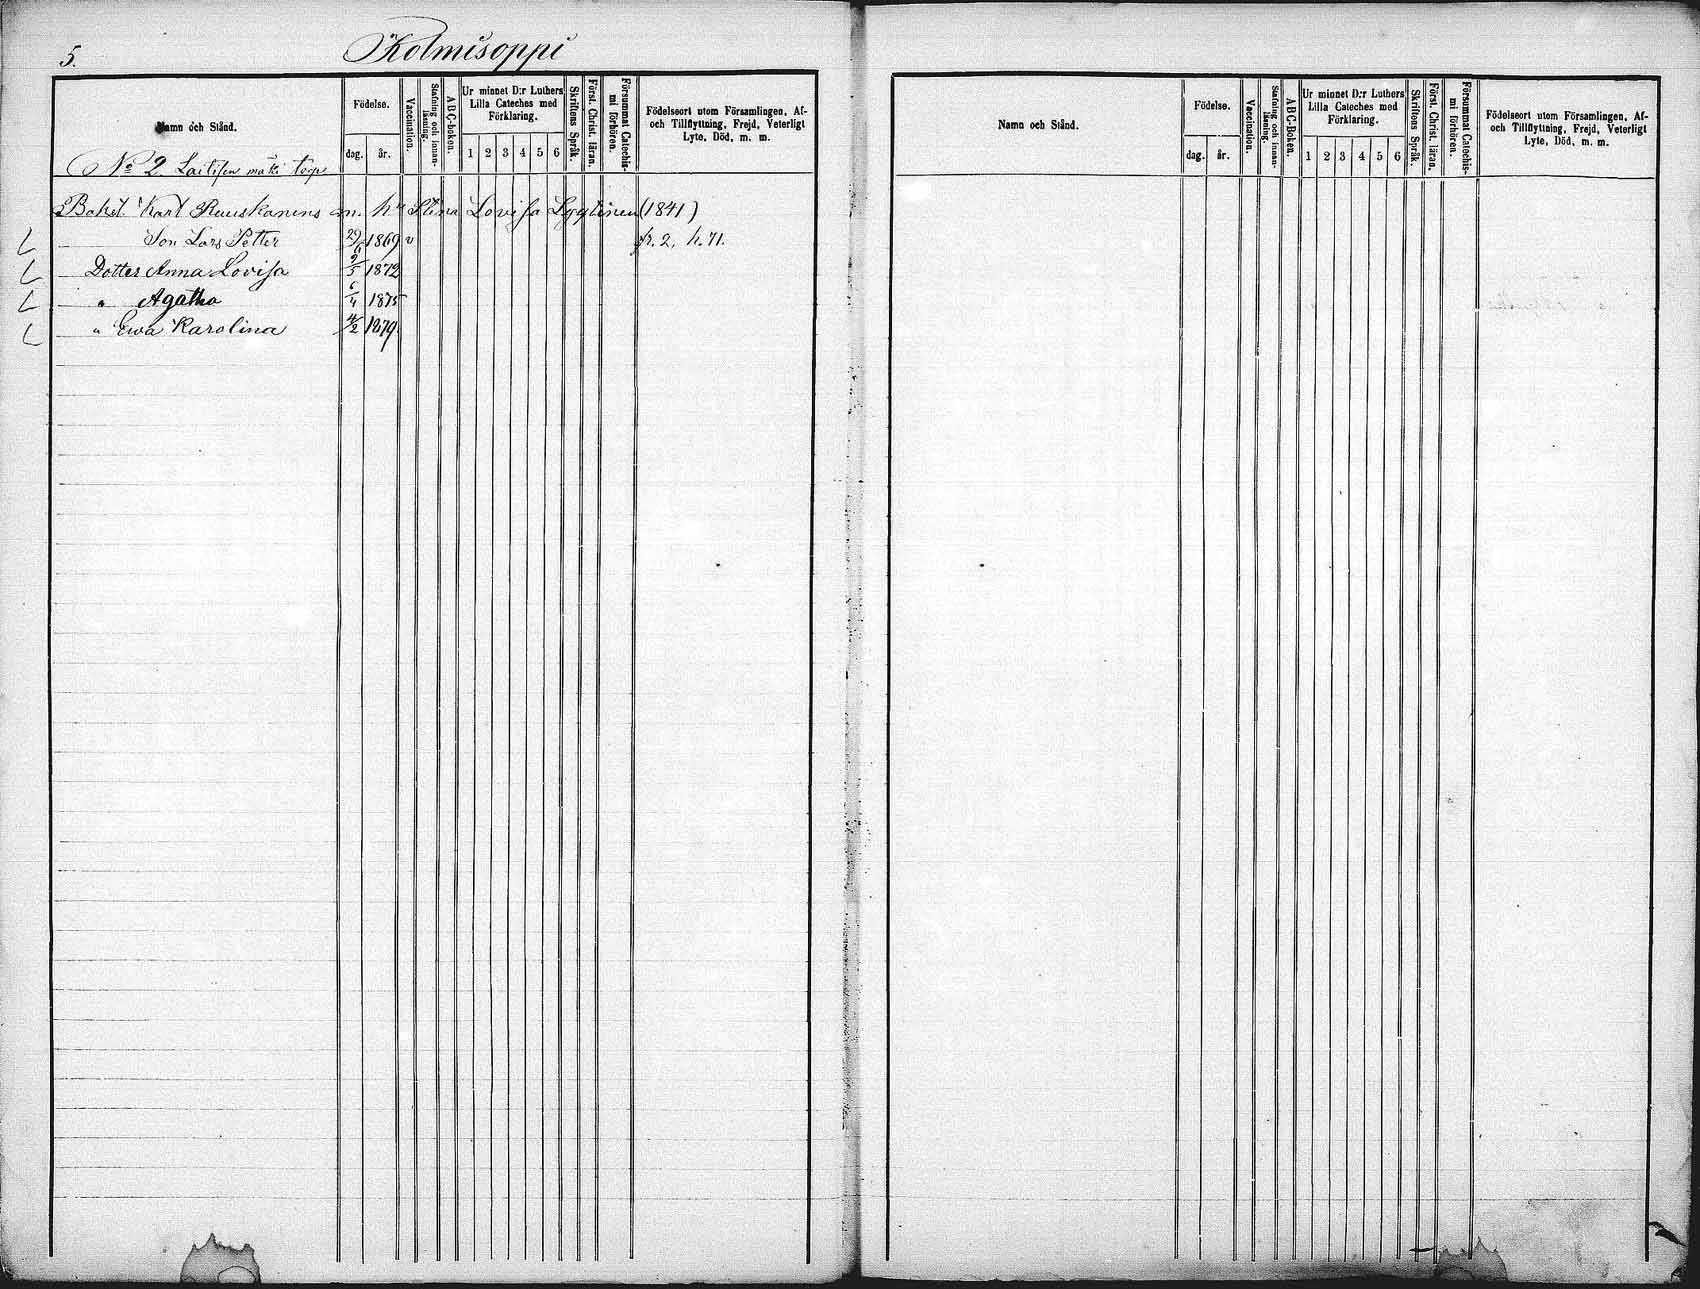 5.
Kolmisoppi
Namn och Stånd.
Födelse.
dag. år.
Vaccination.
Stafning och innanläsning.
ABC-boken.
Ur minnet D:r Luthers Lilla Cateches med Förklaring.
1 2 3 4 5 6
Skriftens Språk.
Först. Christ. läran.
Försummat Catechismi förhören.
Födelseort utom Församlingen, Af- och Tillflyttning, Frejd, Veterligt Lyte, Död, m. m.
No 2. Laitisen mäki torp
Karl Ruuskanens m. hu Stina Lovisa Lyytinen (1841)
Son Lars Petter 29/6 1869 v h. 71.
Dotter Anna Lovisa 9/5 1872
" Agatha 6/4 1875
" Ewa Karolina 4/2 1879.
Namn och Stånd.
Födelse.
dag. år.
Vaccination.
Stafning och innanläsning.
ABC-Boken.
Ur minnet D:r Luthers Lilla Cateches med Förklaring.
1 2 3 4 5 6
Skriftens Språk.
Först. Christ. läran.
Försummat Catechismi förhören.
Födelseort utom Församlingen, Af- och Tillflyttning, Frejd, Veterligt Lyte, Död, m. m.